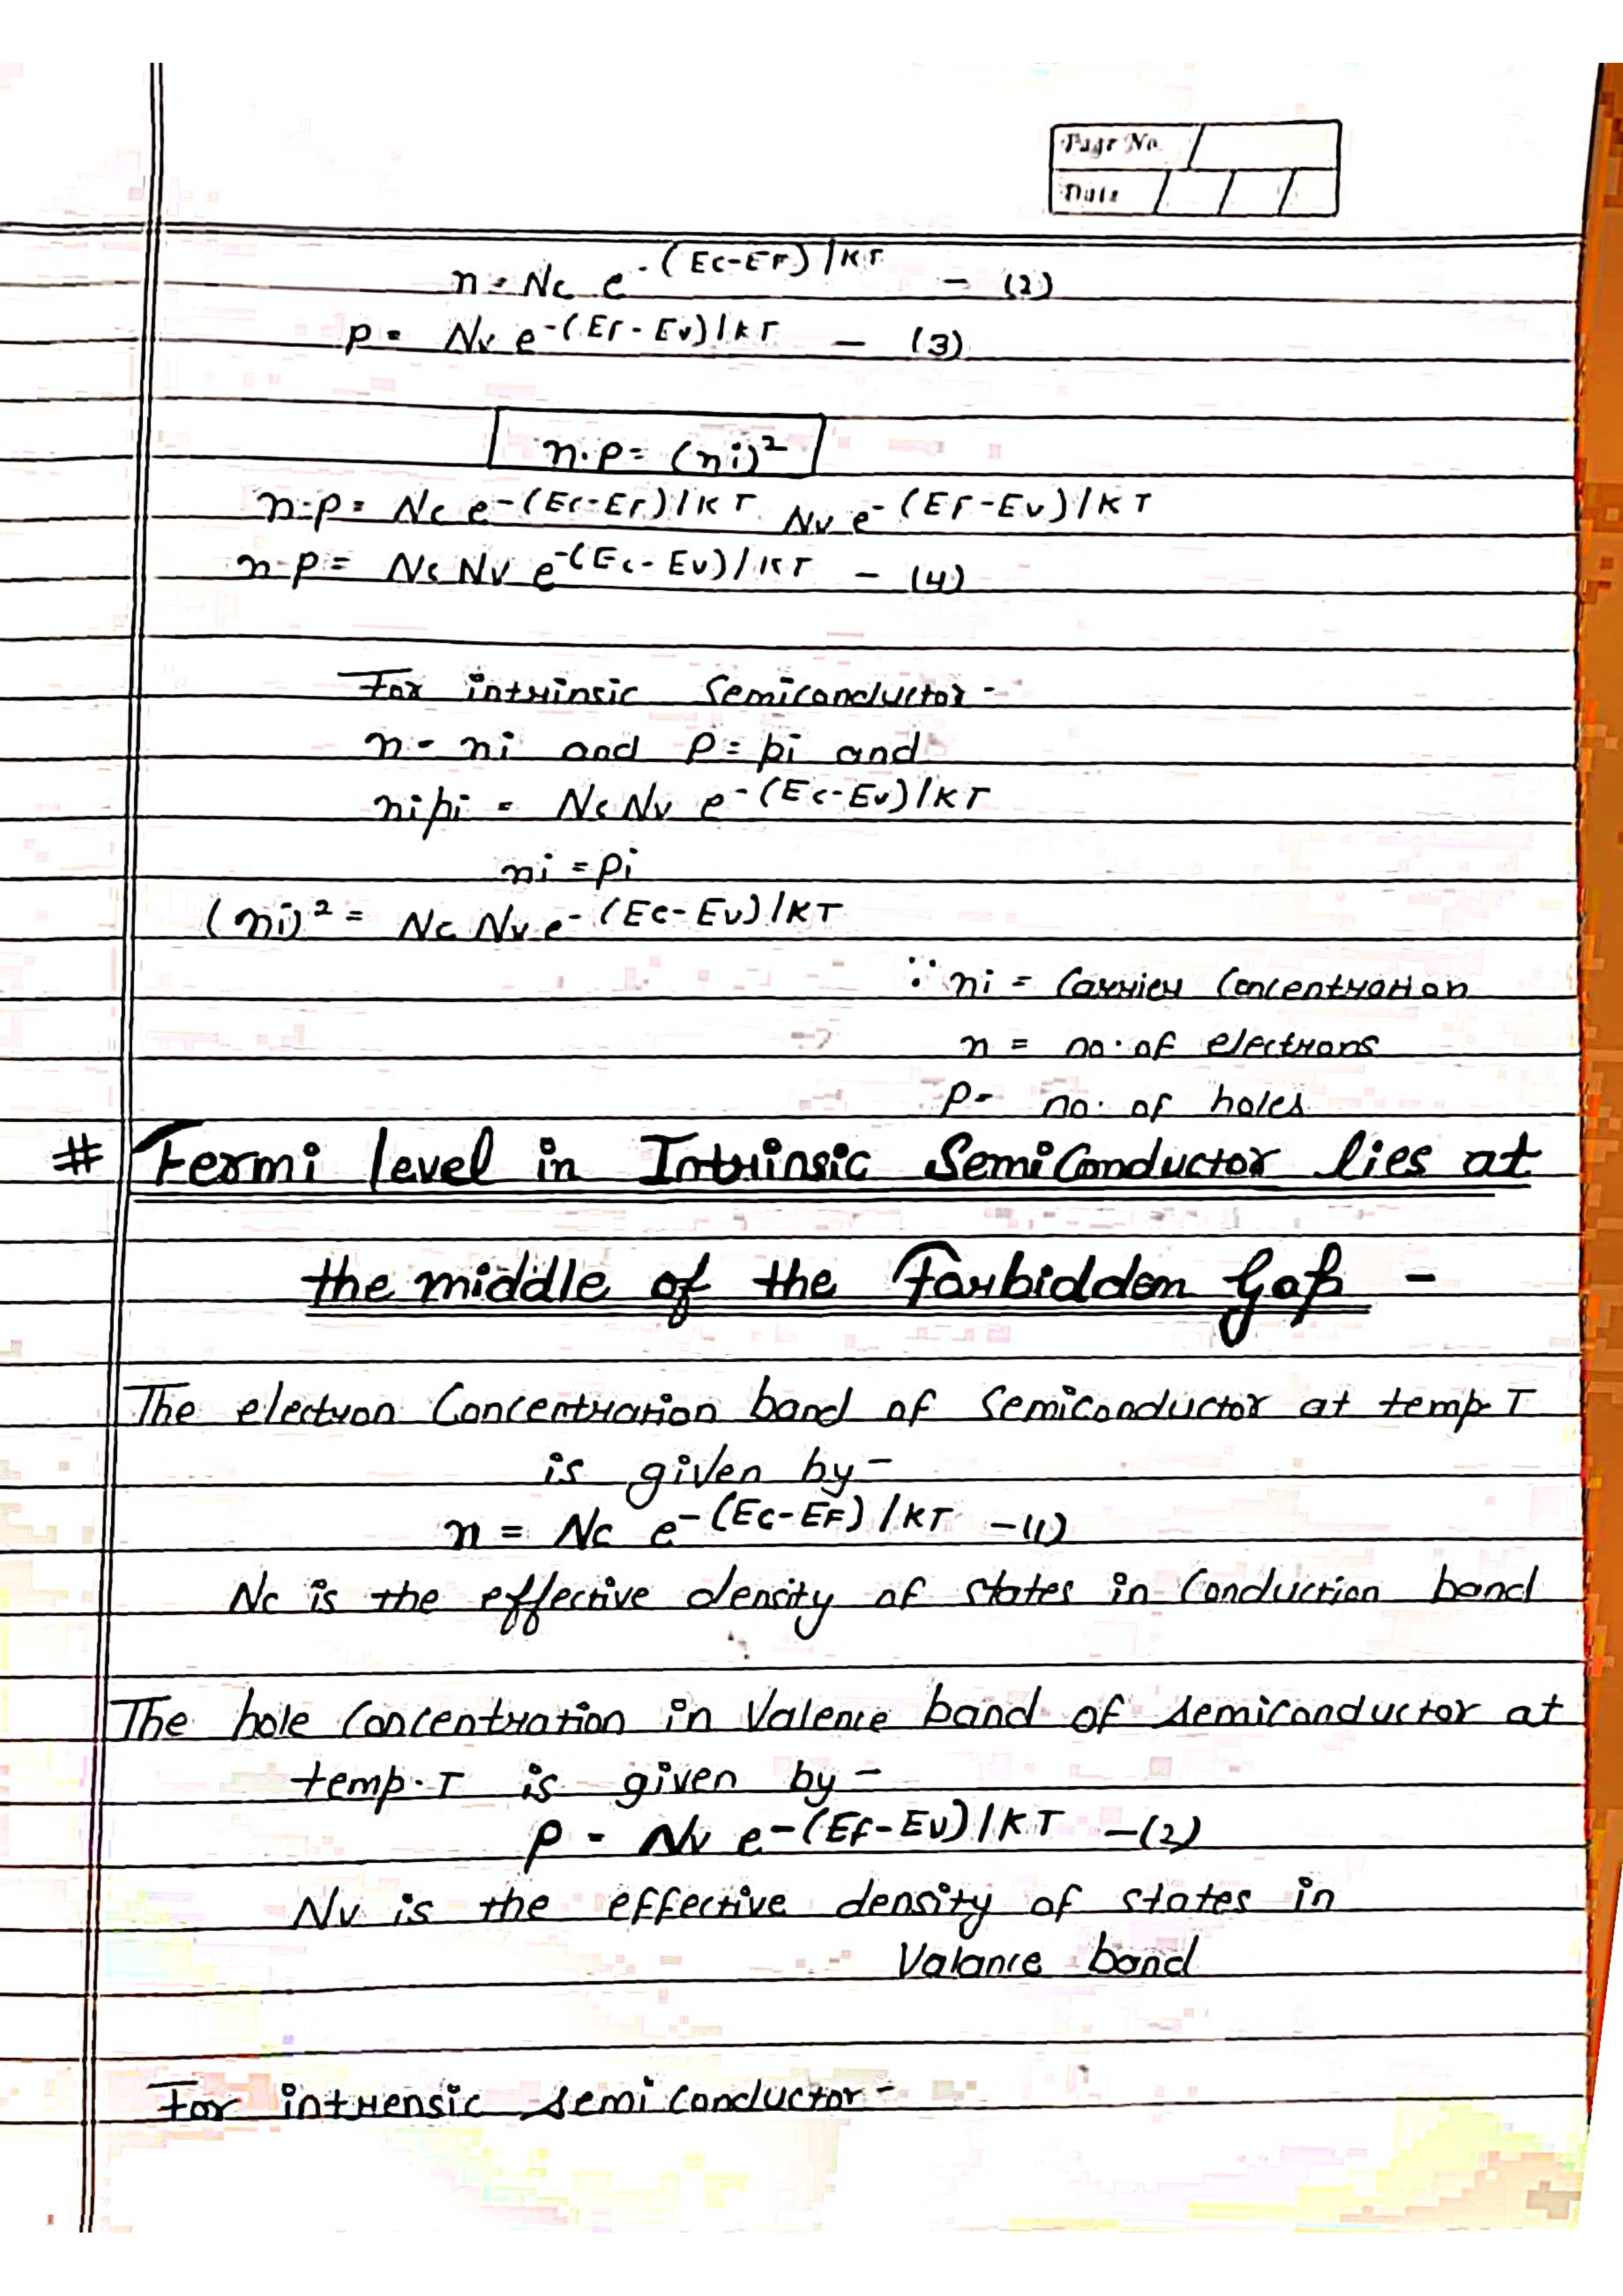 Page No.
Date
n = Nc e-(Ec-EF)/KT - (2)
p = Nv e-(EF-Ev)/KT - (3)
n.p = (ni)²
n.p = Nc e-(Ec-EF)/KT . Nv e-(EF-Ev)/KT
n.p = Nc Nv e-(Ec-Ev)/KT - (4)
For intrinsic Semiconductor -
n = ni and p = pi and
nipi = Nc Nv e-(Ec-Ev)/KT
ni = pi
(ni)² = Nc Nv e-(Ec-Ev)/KT
∵ ni = Carrier Concentration
n = no. of electrons
p = no. of holes
# Fermi level in Intrinsic SemiConductor lies at
the middle of the Forbidden Gap -
The electron Concentration band of Semiconductor at temp. T
is given by -
n = Nc e-(Ec-EF)/KT -(1)
Nc is the effective density of states in Conduction band
The hole Concentration in Valence band of semiconductor at
temp. T is given by -
p = Nv e-(Ef-Ev)/KT -(2)
Nv is the effective density of states in
Valance band
For intrensic semi conductor -